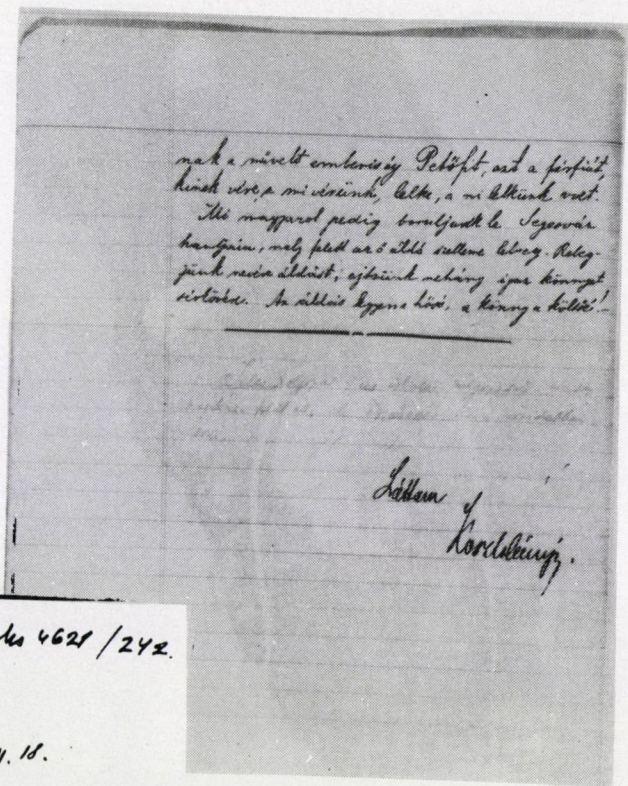 nak a művelt emberiség Petőfit, azt a férfiút,
kinek vére, a mi vérünk, lelke, a mi lelkünk volt.
Mi magyarok pedig boruljunk le Segesvár
hantjain, mely felett az ő áldó szelleme lebeg. Rebeg-
jünk nevére áldást, ejtsünk néhány igaz könnyet
sírkövére. Az áldás legyen a hősé, a könny a költőé!
Láttam
Kosztolányi.
Ms 4621/242.
18.